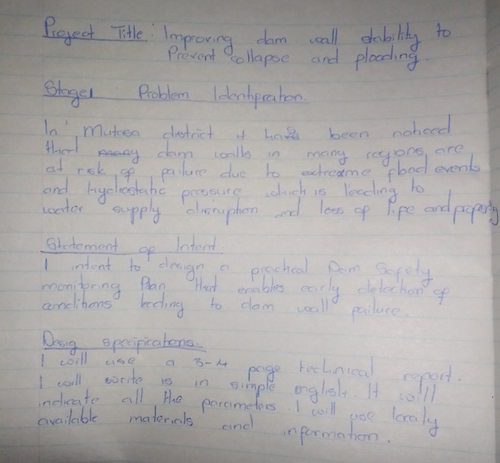 Project Title: Improving dam wall stability to
Prevent collapse and flooding.
Stage 1 Problem Identification
In Mutasa district it has been noticed
that many dam walls in many regions are
at risk of failure due to extreme flood events
and hydrostatic pressure which is leading to
water supply disruption and loss of life and property
Statement of Intent.
I intent to design a practical Dam Safety
monitoring Plan that enables early detection of
conditions leading to dam wall failure.
Design specifications.
I will use a 3-4 page technical report.
I will write is in simple english. It will
indicate all the parameters. I will use localy
available materials and information.